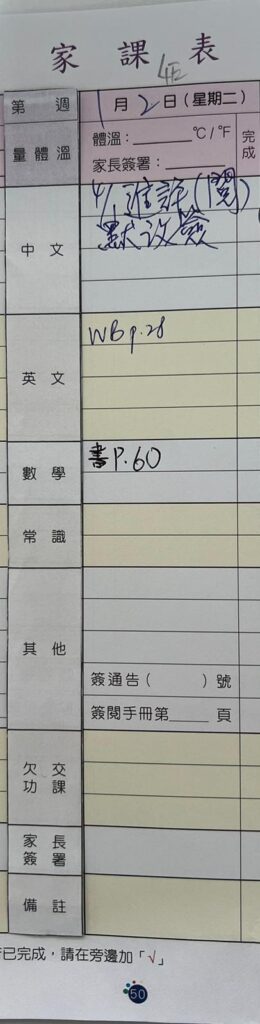 家課表
4E
第 週 1月2日(星期二) 完成
量體溫 體溫:______℃/℉
家長簽署:
中文
默改簽
英文 WB p.28
數學 書P.60
常識
其他
簽通告( )號
簽閱手冊第____頁
欠交功課
家長簽署
備註
已完成,請在旁邊加「√」
50